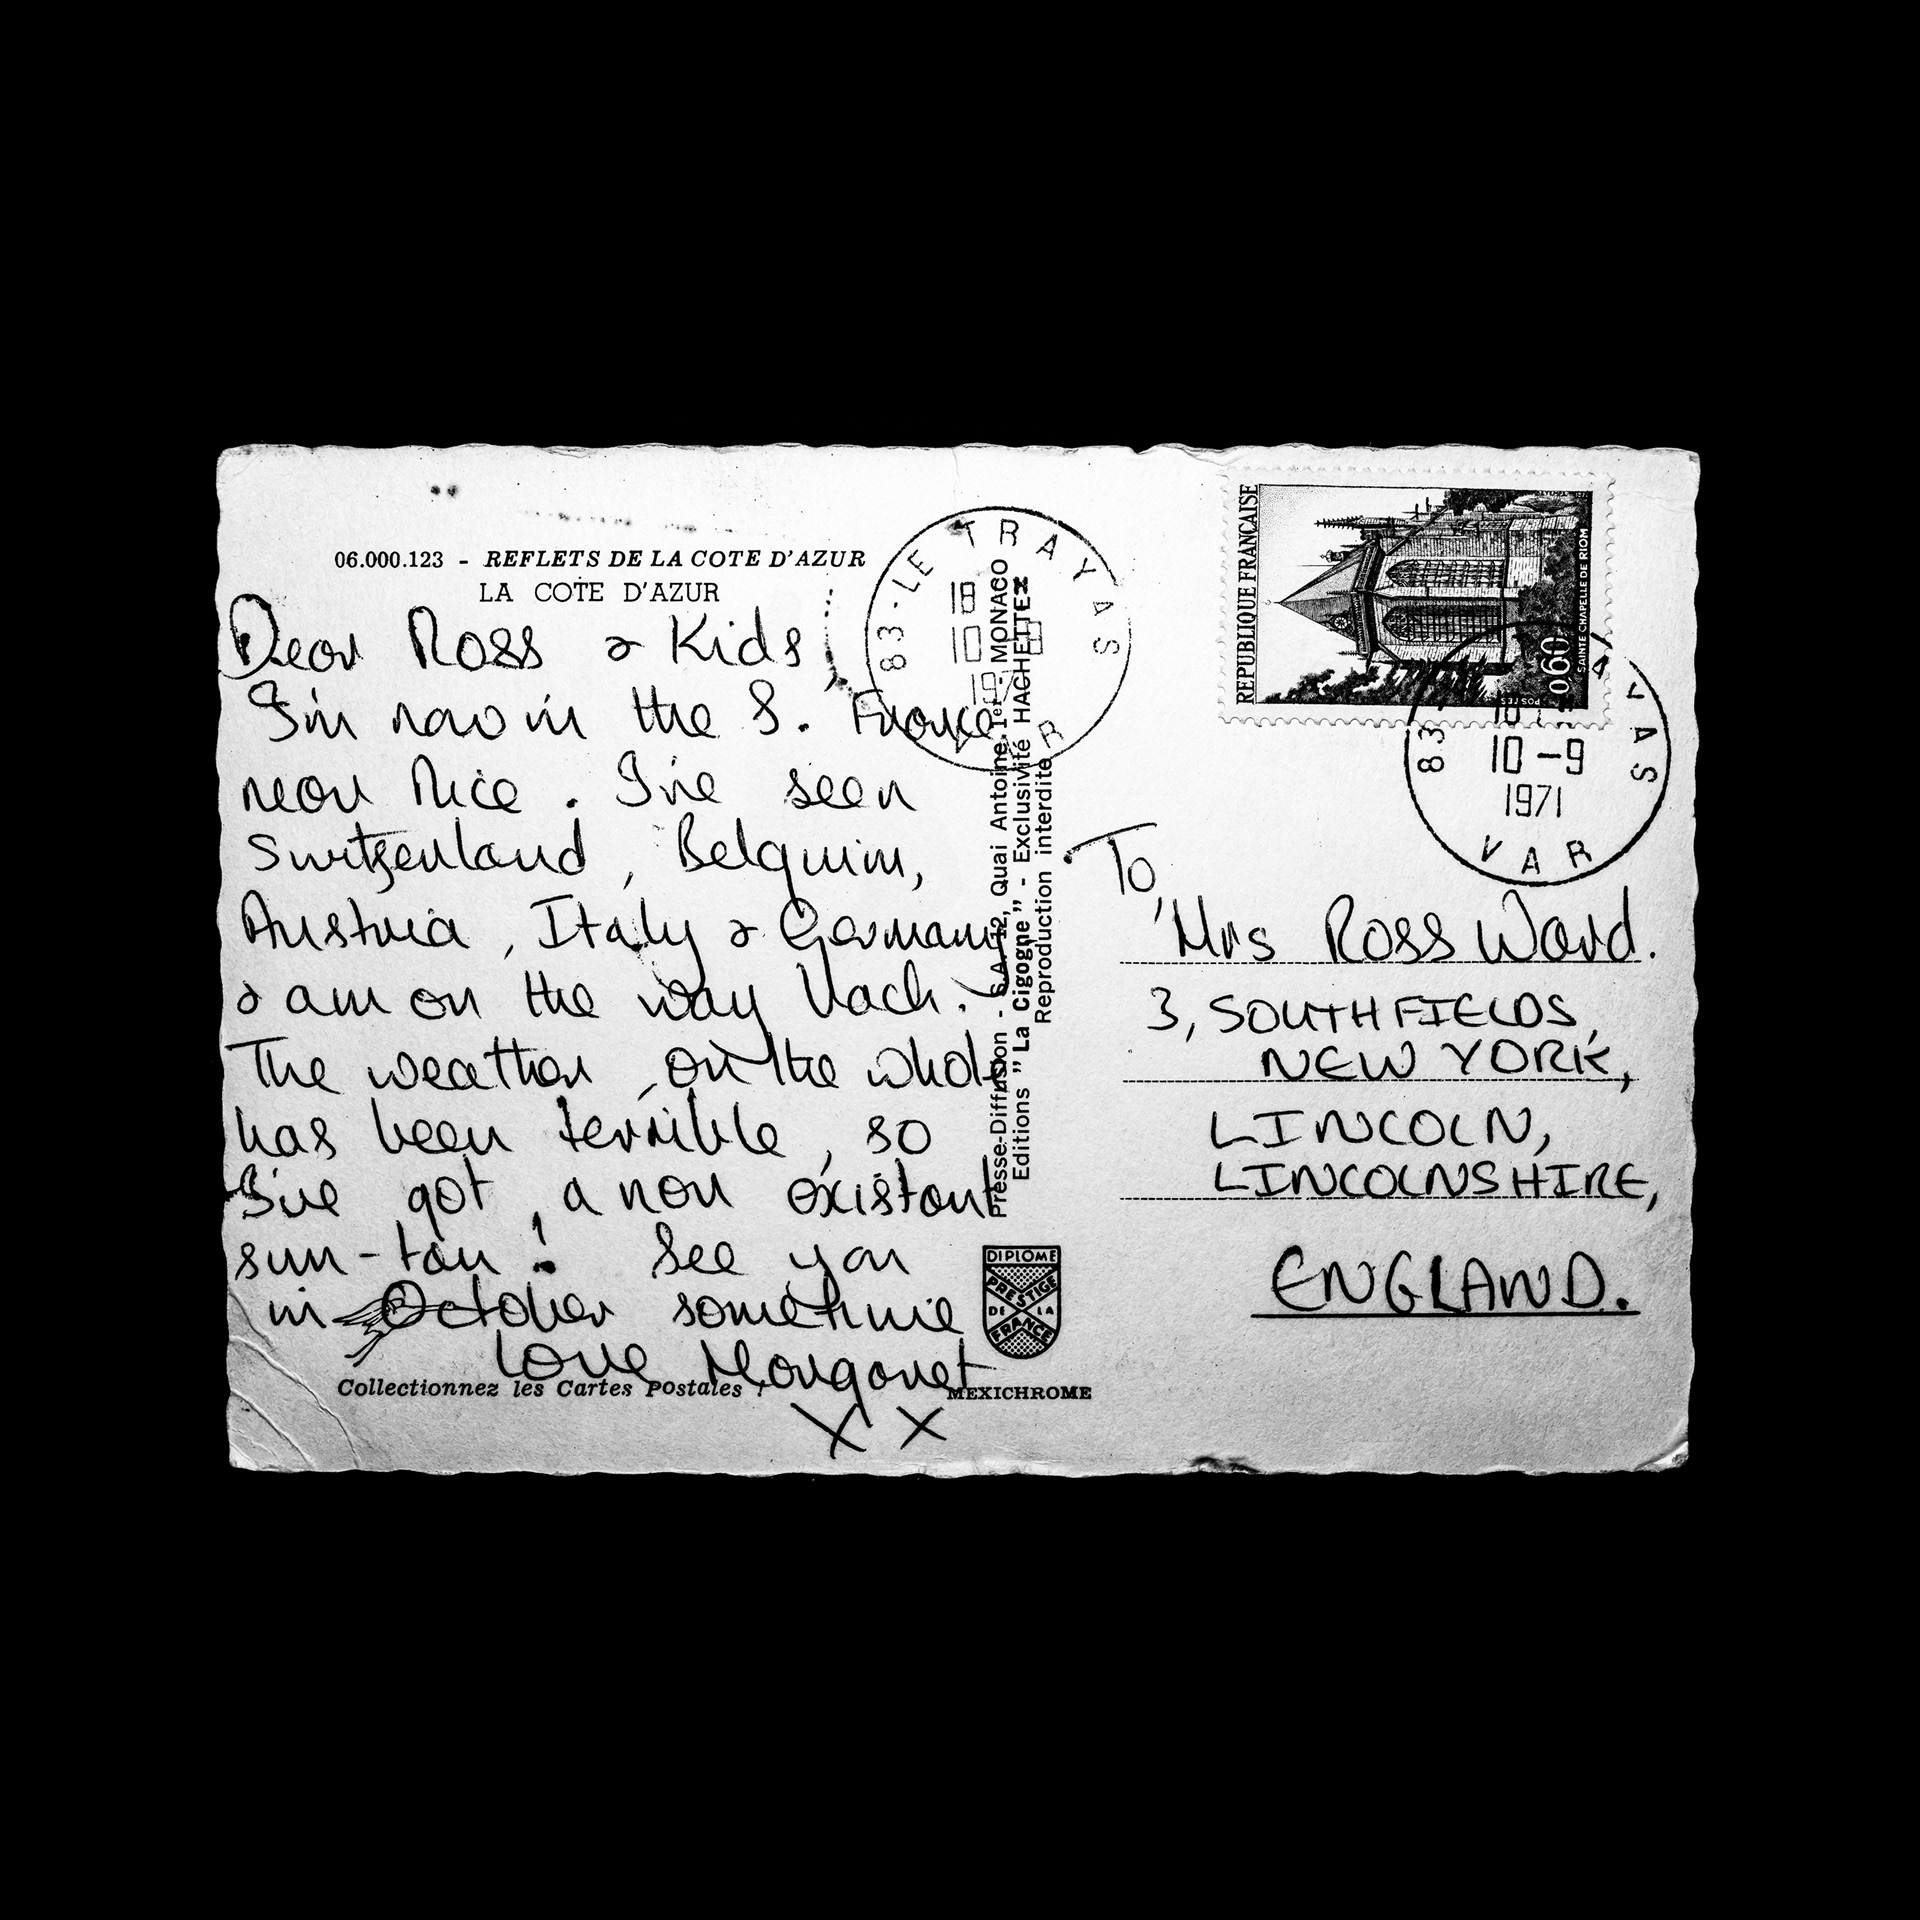 06.000.123 - REFLETS DE LA COTE D'AZUR
LA COTE D'AZUR
Dear Ross & Kids,
I'm now in the S. France
near Nice. I've seen
Switzerland, Belguim,
Austria, Italy & Germany
& am on the way back.
The weather, on the whole
has been terrible, so
I've got, a non existant
sun-tan! See you
in October sometime
Love Margaret
X X
Collectionnez les Cartes Postales !
MEXICHROME
83-LE TRAYAS
18
10-9
VAR
Presse-Diffusion - S.A. 12, Quai Antoine 1er - MONACO
Editions "La Cigogne" - Exclusivité HACHETTE
Reproduction interdite
DIPLOME
PRESTIGE
DE LA
FRANCE
REPUBLIQUE FRANCAISE
0,60
POSTES
SAINTE CHAPELLE DE RIOM
83
AYAS
10-9
1971
VAR
To,
Mrs Ross Ward.
3, SOUTHFIELDS,
NEW YORK,
LINCOLN,
LINCOLNSHIRE,
ENGLAND.